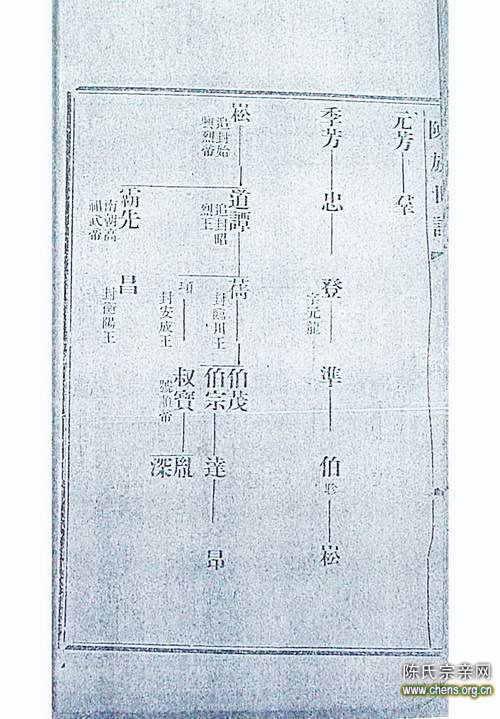 陳族世譜
元芳 羣
季芳 忠 登 準 伯眕 崧
字元龍
崧 道譚 蒨 伯茂
追封始興烈帝
追封昭烈王
封臨川王
伯宗 達 昂
頊 叔寶 胤
封安成王
號煬帝
深
霸先 昌
南朝高祖武帝
封衡陽王
陈氏宗亲网
www.chens.org.cn